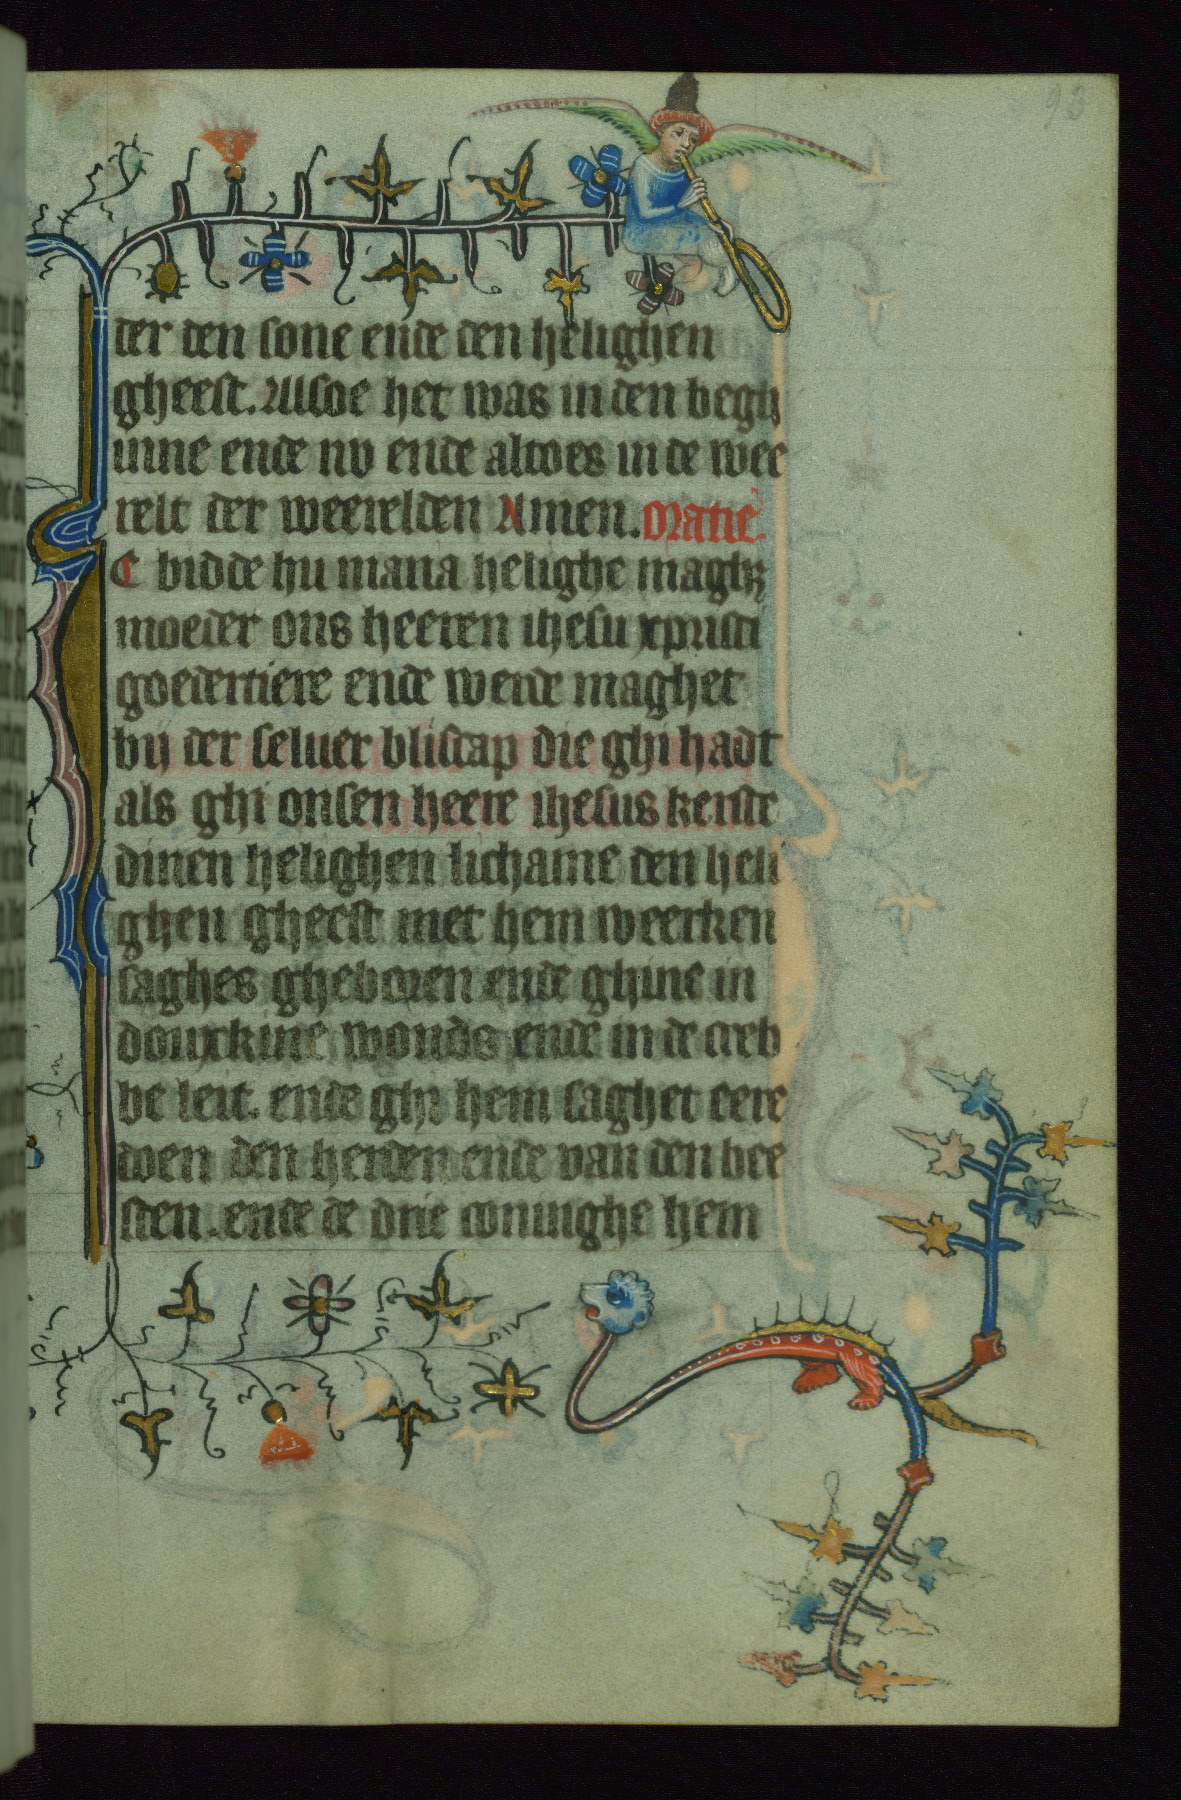 93
der den sone ende den helighen
gheest. Alsoe het was in den begh
inne ende nv ende altoes in de wee
relt der weerelden Amen. Oratie.
C bidde hu maria helighe maghꝫ
moeder ons heeren ihesu xpristi
goedertiere ende werde maghet
bij der seluer bliscap die ghi hadt
als ghi onsen heere ihesus kerste
dinen helighen lichame den heli
ghen gheest met hem weerken
saghes gheboren ende ghine in
douxkine wonds ende in de creb
be leit. ende ghi hem saghet eere
doen den herden ende van den bee
sten. ende de drie coninghe hem